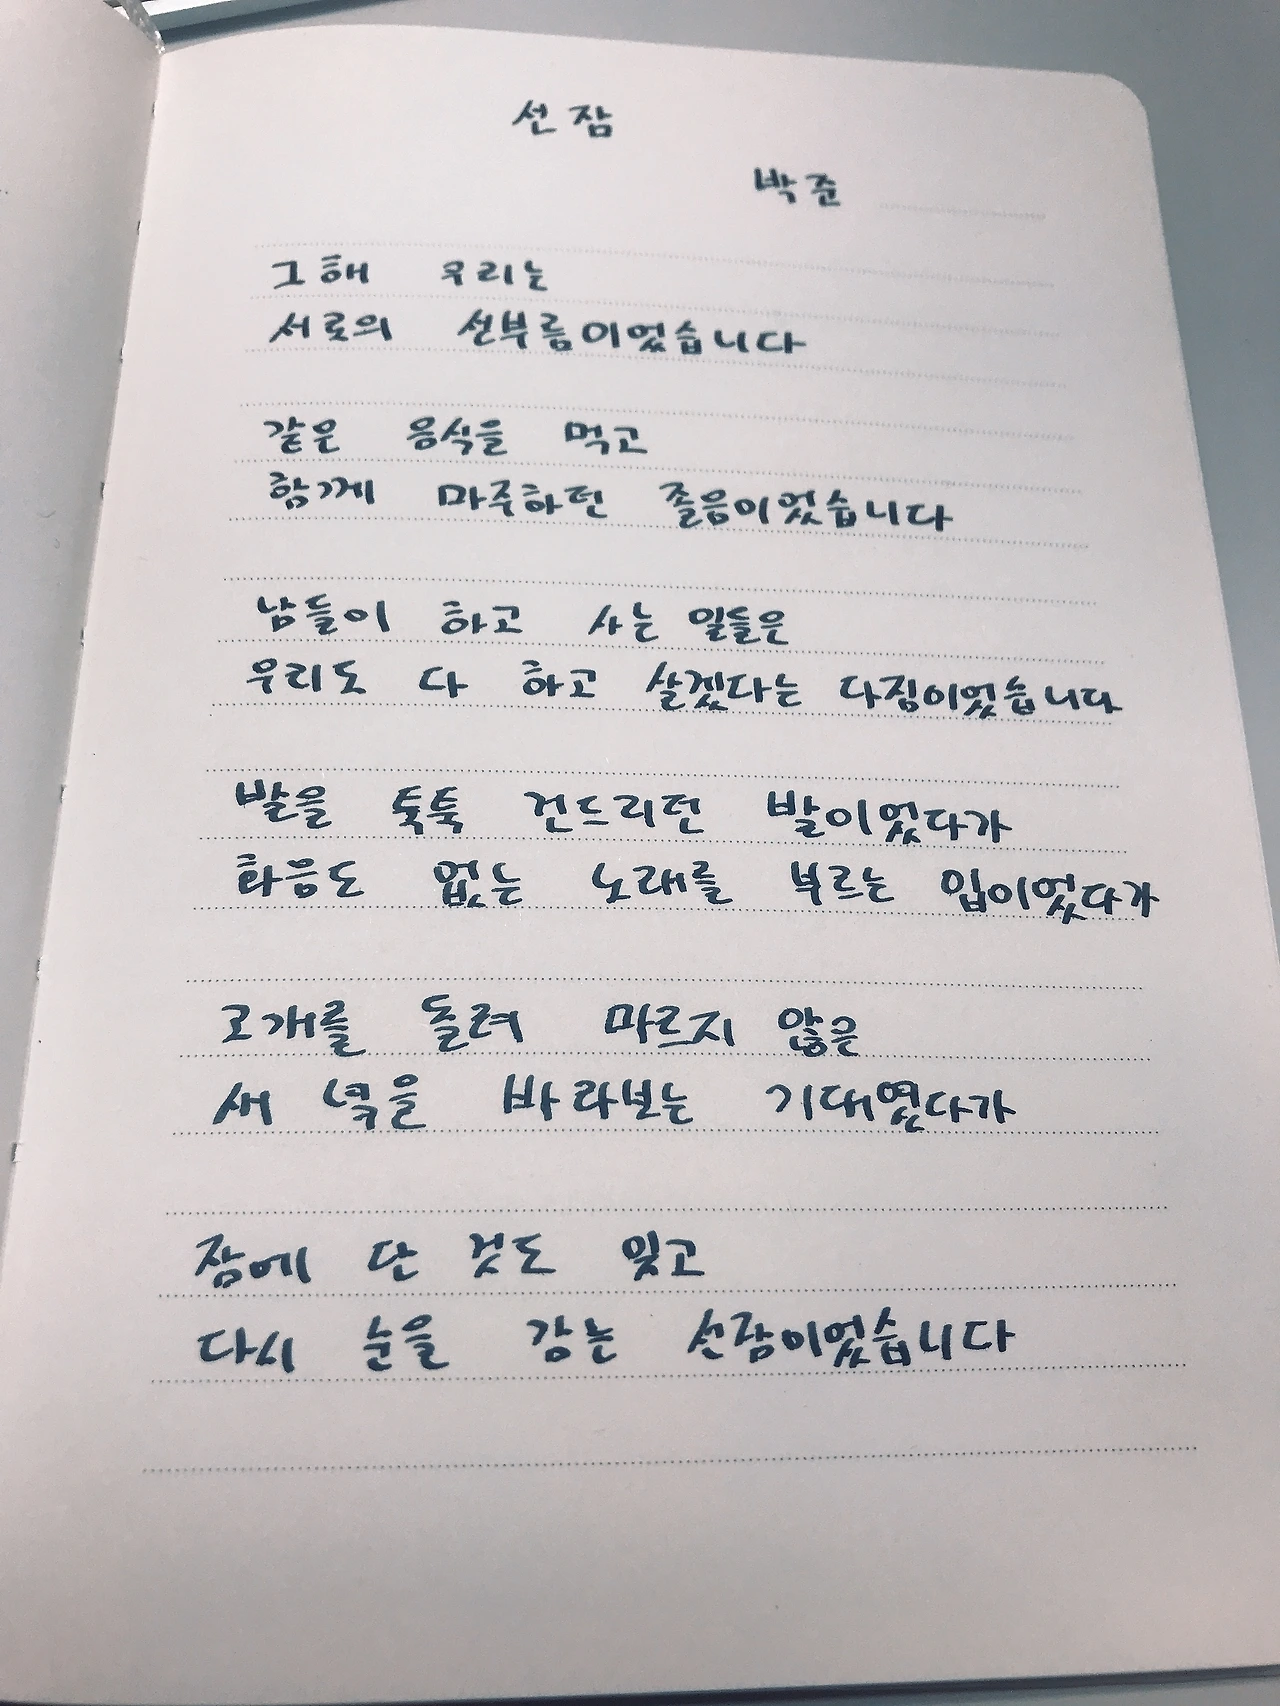 선잠
박준
그해 우리는
서로의 선부름이었습니다
같은 음식을 먹고
함께 마주하던 졸음이었습니다
남들이 하고 사는 일들은
우리도 다 하고 살겠다는 다짐이었습니다
발을 툭툭 건드리던 발이었다가
화음도 없는 노래를 부르는 입이었다가
고개를 돌려 마르지 않은
새 녘을 바라보는 기대였다가
잠에 단 것도 잊고
다시 눈을 감는 선잠이었습니다